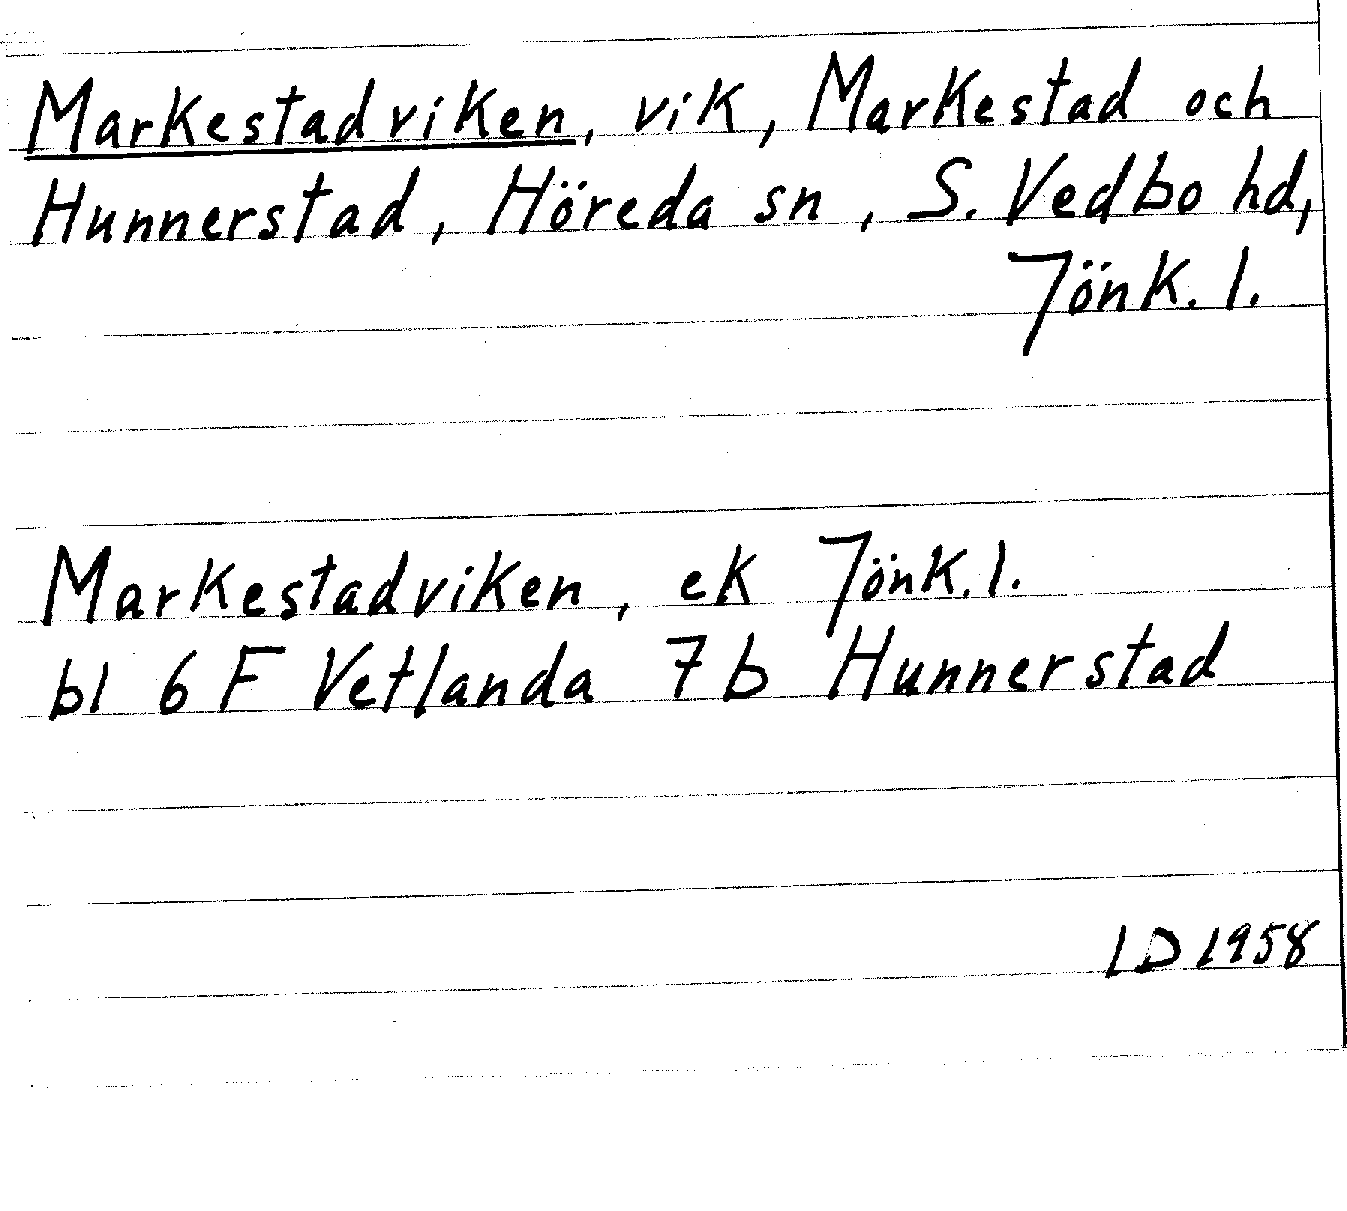 Markestadviken, vik, Markestad och
Hunnerstad, Höreda sn, S. Vedbo hd,
Jönk. l.
Markestadviken, ek Jönk. l.
bl 6 F Vetlanda 7 b Hunnerstad
LD 1958